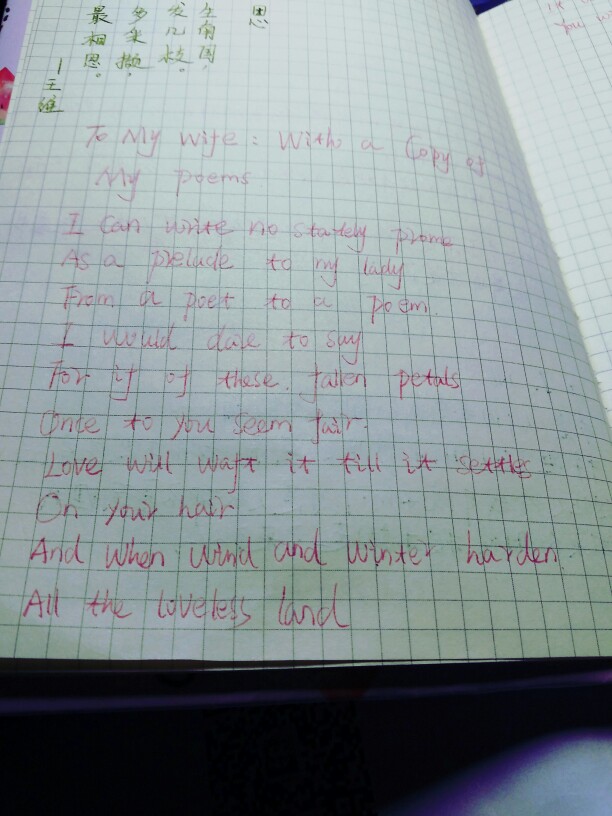 思
生南国.
发几枝.
多采撷.
最相思.
—王维
To My wife: With a Copy of
My poems
I Can write no stately prome
As a prelude to my lady
From a poet to a poem.
I would dare to say
For if of these. fallen petals
Once to you seem fair.
Love will waft it till it settles
On your hair
And when wind and winter harden.
All the loveless land